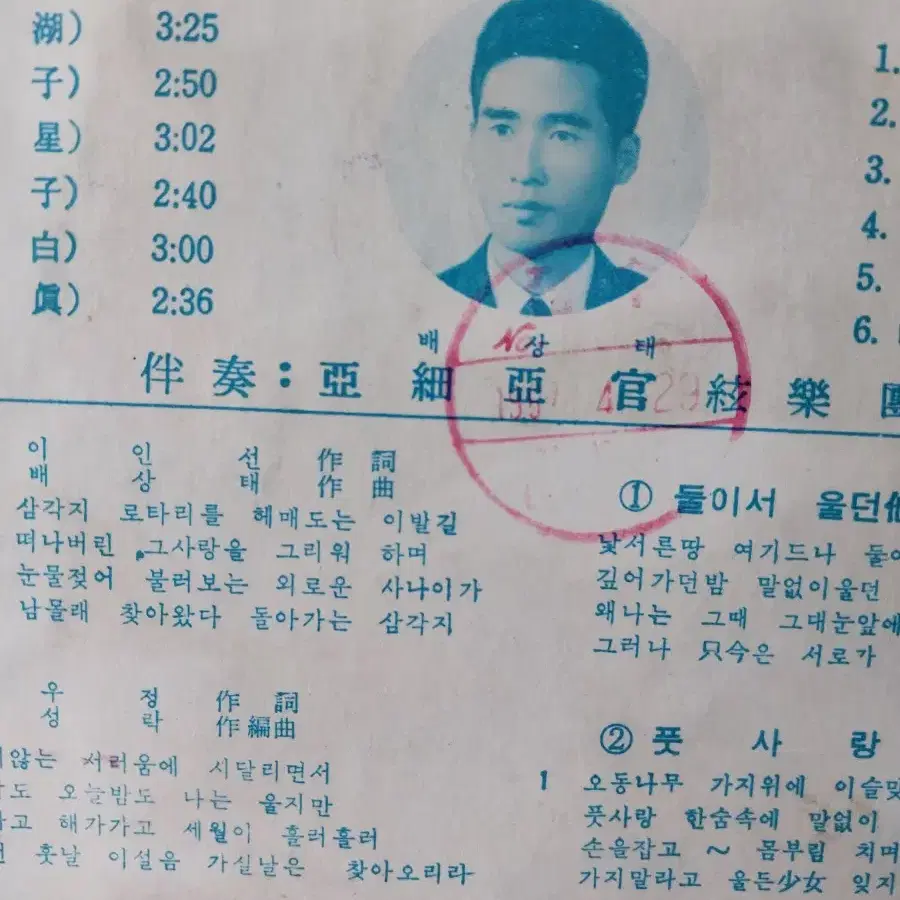 湖) 3:25
子) 2:50
星) 3:02
子) 2:40
白) 3:00
眞) 2:36
1.
2.
3.
4.
5.
6.
배 상 태
伴奏:亞細亞官絃樂團
이 인 선 作 詞
배 상 태 作 曲
삼각지 로타리를 헤매도는 이발길
떠나버린 그사랑을 그리워 하며
눈물젖어 불러보는 외로운 사나이가
남몰래 찾아왔다 돌아가는 삼각지
우 정 作 詞
성 락 作編曲
않는 서러움에 시달리면서
도 오늘밤도 나는 울지만
고 해가가고 세월이 흘러흘러
훗날 이설음 가실날은 찾아오리라
① 둘이서 울던
낯서른땅 여기드나
깊어가던밤 말없이울던
왜나는 그때 그대눈앞에
그러나 只今은 서로가
② 풋 사 랑
1 오동나무 가지위에
풋사랑 한숨속에 말없이
손을잡고 ~ 몸부림 치며
가지말라고 울든少女 잊지